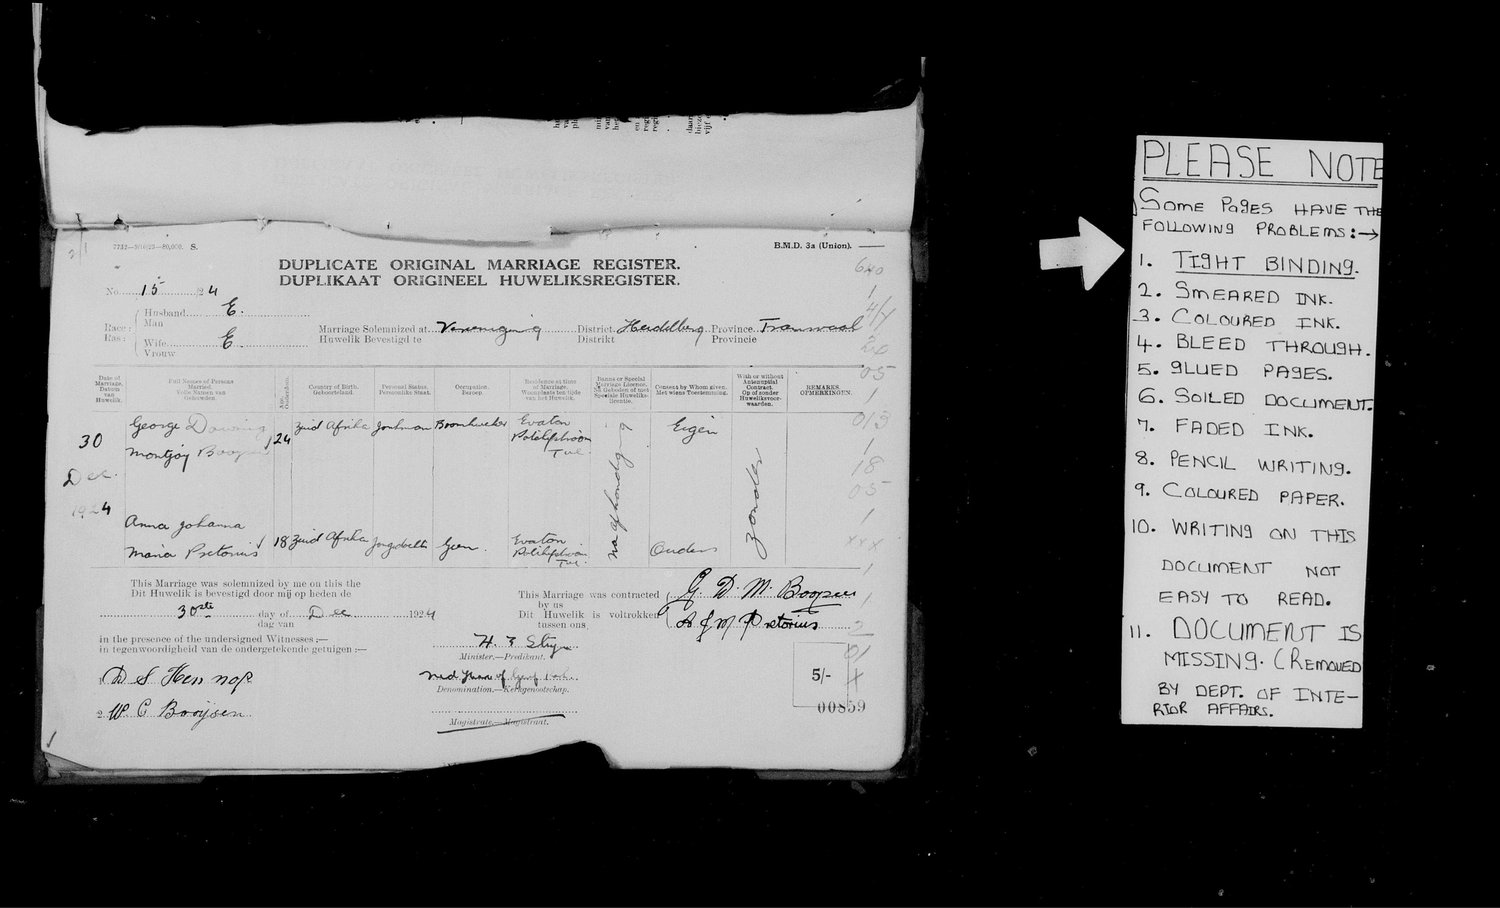 7737—9/10/23—80,000. S.
B.M.D. 3a (Union).
DUPLICATE ORIGINAL MARRIAGE REGISTER.
DUPLIKAAT ORIGINEEL HUWELIKSREGISTER.
No. 15 24
Race: Husband E.
Ras: Man
Wife E.
Vrouw
Marriage Solemnized at Vereeniging District Heidelberg Province Transvaal
Huwelik Bevestigd te Distrikt Provincie
Date of Marriage. Datum van Huwelik.
Full Names of Persons Married. Volle Namen van Gehuwden.
Age. Ouderdom.
Country of Birth. Geboorteland.
Personal Status. Persoonlike Staat.
Occupation. Beroep.
Residence at time of Marriage. Woonplaats ten tijde van het Huwelik.
Banns or Special Marriage Licence. Na Geboden of met Speciale Huweliks-licentie.
Consent by Whom given. Met wiens Toestemming.
With or without Antenuptial Contract. Op of zonder Huweliksvoorwaarden.
REMARKS. OPMERKINGEN.
30 Dec. 1924
George Downing
Montjoy Booysen
24 Zuid Afrika Jonkman Evaton
Potchefstroom
Tvl.
na afkondiging
Eigen
zonder
Anna Johanna
Maria Pretorius
18 Zuid Afrika Geen. Evaton
Potchefstroom
Tvl.
Ouders
This Marriage was solemnized by me on this the
Dit Huwelik is bevestigd door mij op heden de
30ste day of Dec 1924
dag van
in the presence of the undersigned Witnesses:—
in tegenwoordigheid van de ondergetekende getuigen:—
1. D S Hennop
2. W C Booijsen
This Marriage was contracted
by us
Dit Huwelik is voltrokken
tussen ons,
G. D. M. Booysen
A J M Pretorius
Minister.—Predikant.
Denomination.—Kerkgenootschap.
Magistrate.—Magistraat.
640
1
4/7
20
05
1
013
1
18
05
1
xxx
1
1
2
01
X
5/-
00859
PLEASE NOTE
SOME PAGES HAVE THE
FOLLOWING PROBLEMS:→
1. TIGHT BINDING.
2. SMEARED INK.
3. COLOURED INK.
4. BLEED THROUGH.
5. GLUED PAGES.
6. SOILED DOCUMENT.
7. FADED INK.
8. PENCIL WRITING.
9. COLOURED PAPER.
10. WRITING ON THIS
DOCUMENT NOT
EASY TO READ.
11. DOCUMENT IS
MISSING. (REMOVED
BY DEPT. OF INTE-
RIOR AFFAIRS.